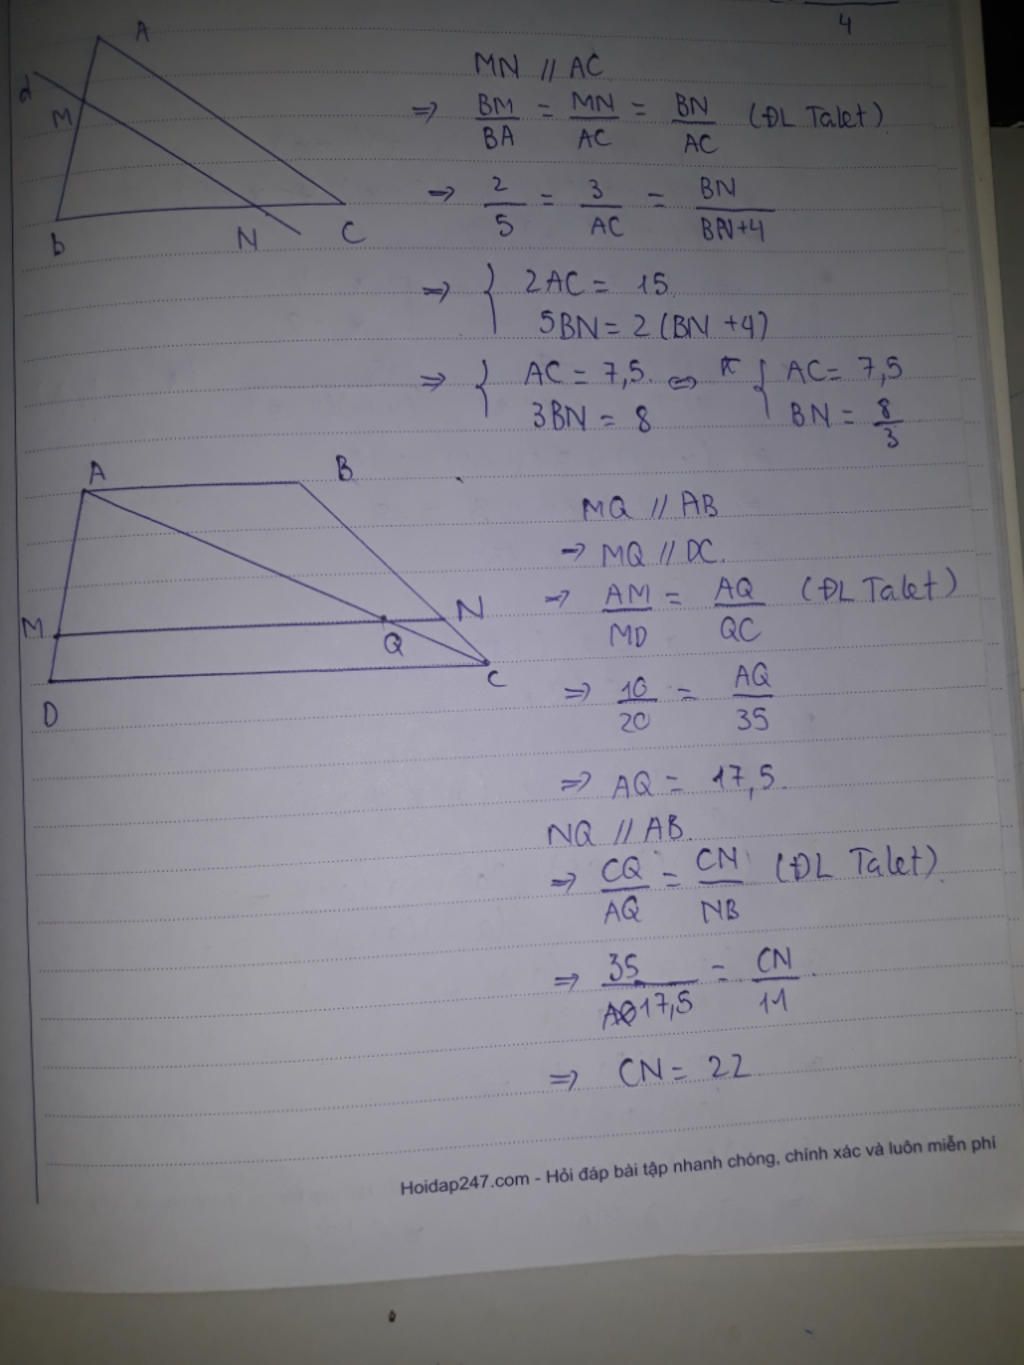 4
A
d
M
B
N
C
MN // AC
=> BM/BA = MN/AC = BN/AC (ĐL Talet)
=> 2/5 = 3/AC = BN/BN+4
=> { 2AC = 15
5BN = 2(BN+4)
=> { AC = 7,5 <=> { AC = 7,5
3BN = 8 BN = 8/3
A
B
M
N
Q
C
D
MQ // AB
=> MQ // DC.
=> AM/MD = AQ/QC (ĐL Talet)
=> 10/20 = AQ/35
=> AQ = 17,5.
NQ // AB.
=> CQ/AQ = CN/NB (ĐL Talet)
=> 35/17,5 = CN/11
=> CN = 22
Hoidap247.com - Hỏi đáp bài tập nhanh chóng, chính xác và luôn miễn phí